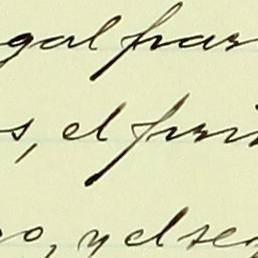 gal fran
s, el pri
o, y el seg